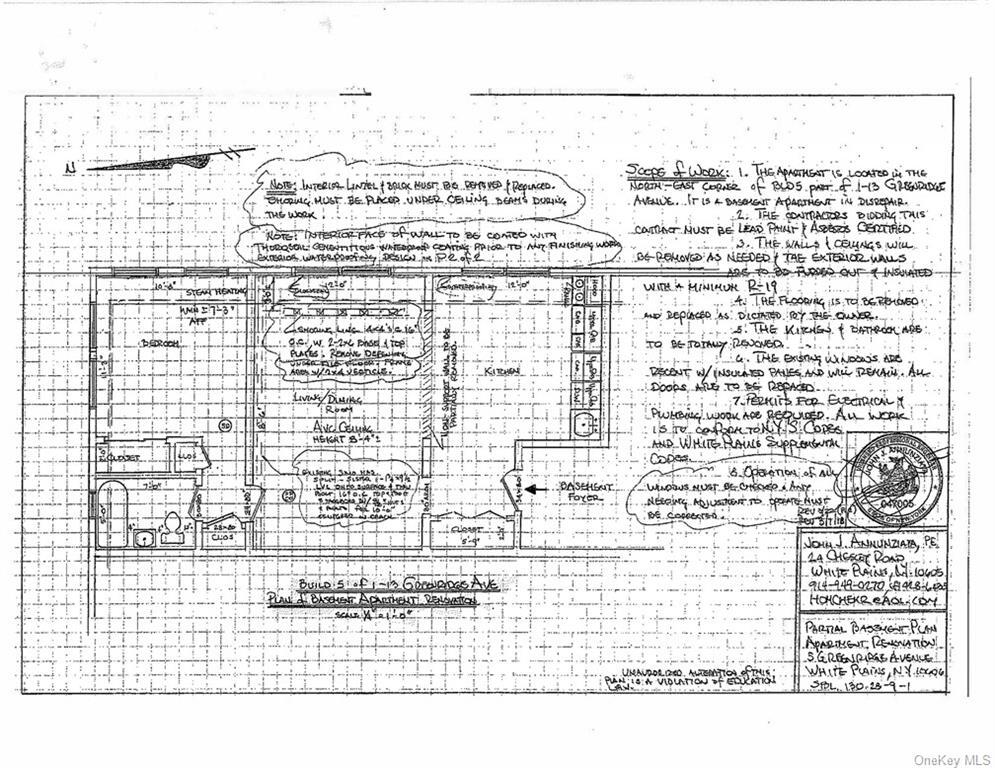 N
NOTE: INTERIOR LINTEL & BRICK MUST BE REMOVED & REPLACED.
SHORING MUST BE PLACED UNDER CEILING BEAMS DURING
THE WORK.
NOTE: INTERIOR FACE OF WALL TO BE COATED WITH
THOROSEAL CEMENTITIOUS WATERPROOF COATING PRIOR TO ANY FINISHING WORK
EXTERIOR WATERPROOFING DESIGN IN P2 OF 2
SCOPE OF WORK: 1. THE APARTMENT IS LOCATED IN THE
NORTH-EAST CORNER OF BLDG PART OF 1-13 GREENRIDGE
AVENUE. IT IS A BASEMENT APARTMENT IN DISREPAIR.
2. THE CONTRACTORS BIDDING THIS
CONTRACT MUST BE LEAD PAINT & ASBESTOS CERTIFIED
3. THE WALLS & CEILINGS WILL
BE REMOVED AS NEEDED & THE EXTERIOR WALLS
ARE TO BE FURRED OUT & INSULATED
WITH A MINIMUM R-19
4. THE FLOORING IS TO BE REMOVED
AND REPLACED AS DICTATED BY THE OWNER.
5. THE KITCHEN & BATHROOM ARE
TO BE TOTALLY RENOVED.
6. THE EXISTING WINDOWS ARE
RECENT W/ INSULATED PANES AND WILL REMAIN. ALL
DOORS ARE TO BE REPLACED.
7. PERMITS FOR ELECTRICAL &
PLUMBING WORK ARE REQUIRED. ALL WORK
IS TO CONFORM TO N.Y.S. CODES
AND WHITE PLAINS SUPPLEMENTAL
CODES.
8. OPERATION OF ALL
WINDOWS MUST BE CHECKED & ANY
NEEDING ADJUSTMENT TO OPERATE MUST
BE CORRECTED.
10'-0"
STEAM HEATING
12'-0"
12'-0"
HOOD
7'-3"
AFF
BEDROOM
SHORING
4x4's @ 16"
O.C. W. 2-2x6 BASE & TOP
PLATES. REMOVE
LIVING/DINING
ROOM
AVG CEILING
HEIGHT 8'-4"±
NON-SUPPORT WALL TO BE
PARTIALLY REMOVED.
KITCHEN
SD
CLOSET
CLOS
7'-0"
5'-0"
28x80
CLOS
CLOSET
5'-9"
BASEMENT
FOYER
BUILD. 5 OF 1-13 GREENRIDGE AVE
PLAN OF BASEMENT APARTMENT RENOVATION
SCALE 1/4" = 1'-0"
JOHN J. ANNUNZIATA
JOHN J. ANNUNZIATA, PE
WHITE PLAINS, N.Y. 10605
HOMCHEKR@AOL.COM
PARTIAL BASEMENT PLAN
APARTMENT RENOVATION
5 GREENRIDGE AVENUE
WHITE PLAINS, N.Y.
SBL 130.28-9-1
UNAUTHORIZED ALTERATION OF THIS
PLAN IS A VIOLATION OF EDUCATION
LAW.
OneKey MLS